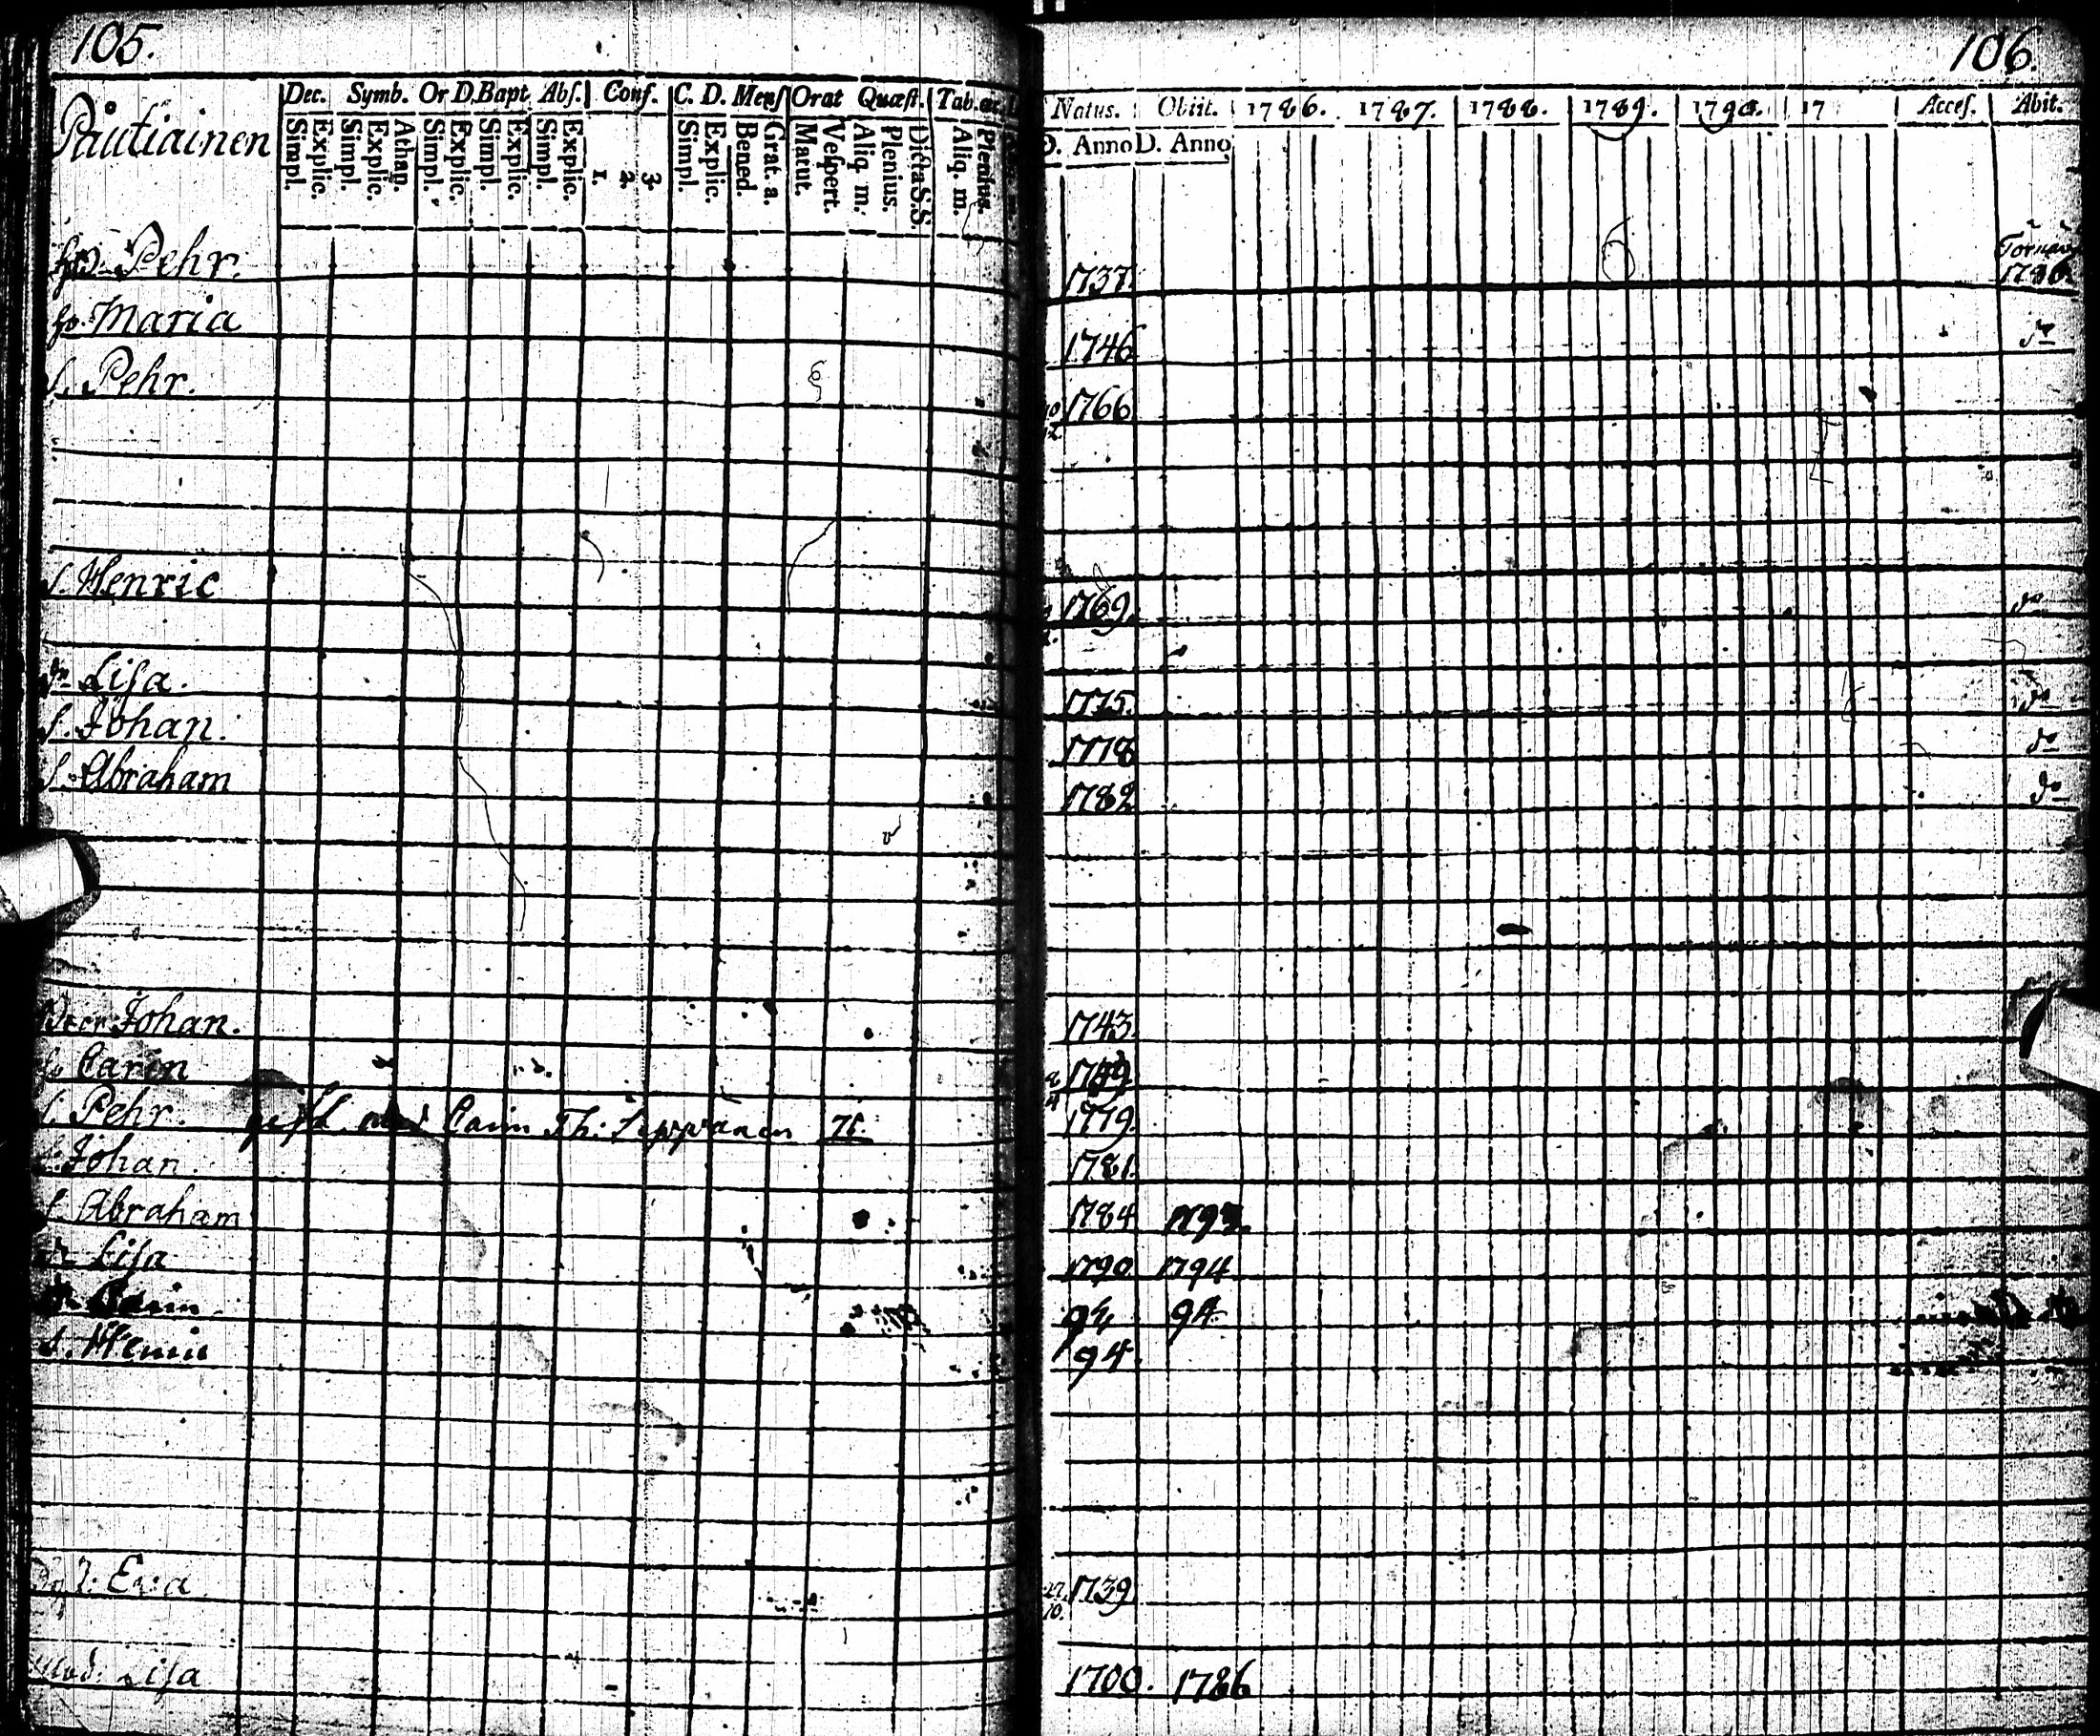 105.
Dec. Symb. Or D. Bapt. Abſ. Conf. C. D. Menſ Orat Quæſt. Tab.
Påutiainen
Simpl. Explic. Simpl. Explic. Athan. Simpl. Explic. Simpl. Explic. Simpl. Explic. 1. 2. 3. Simpl. Explic. Bened. Grat. a. Matut. Veſpert. Aliq. m. Plenius. Dicta S.S. Aliq. m. Plenius.
Pehr.
h. Maria
S. Pehr.
S. Henric
dr Liſa.
S. Johan.
S. Abraham
Bror Johan.
h. Carin
S. Pehr. gift med Carin Th: Seppanen 71
S. Johan.
S Abraham
dr Liſa
dr Carin
S. Henric
Eva
Liſa
106.
Natus. Obiit. 1786. 1787. 1788. 1789. 1790. 17 Acceſ. Abit.
D. Anno D. Anno
1737. 1786.
1746 do
10 1766
1769. do
1775. do
1778 do
1782 do
1743.
1749
1779.
1781.
1784
1790 1794
94 94
94
27. 10. 1739
1700. 1786